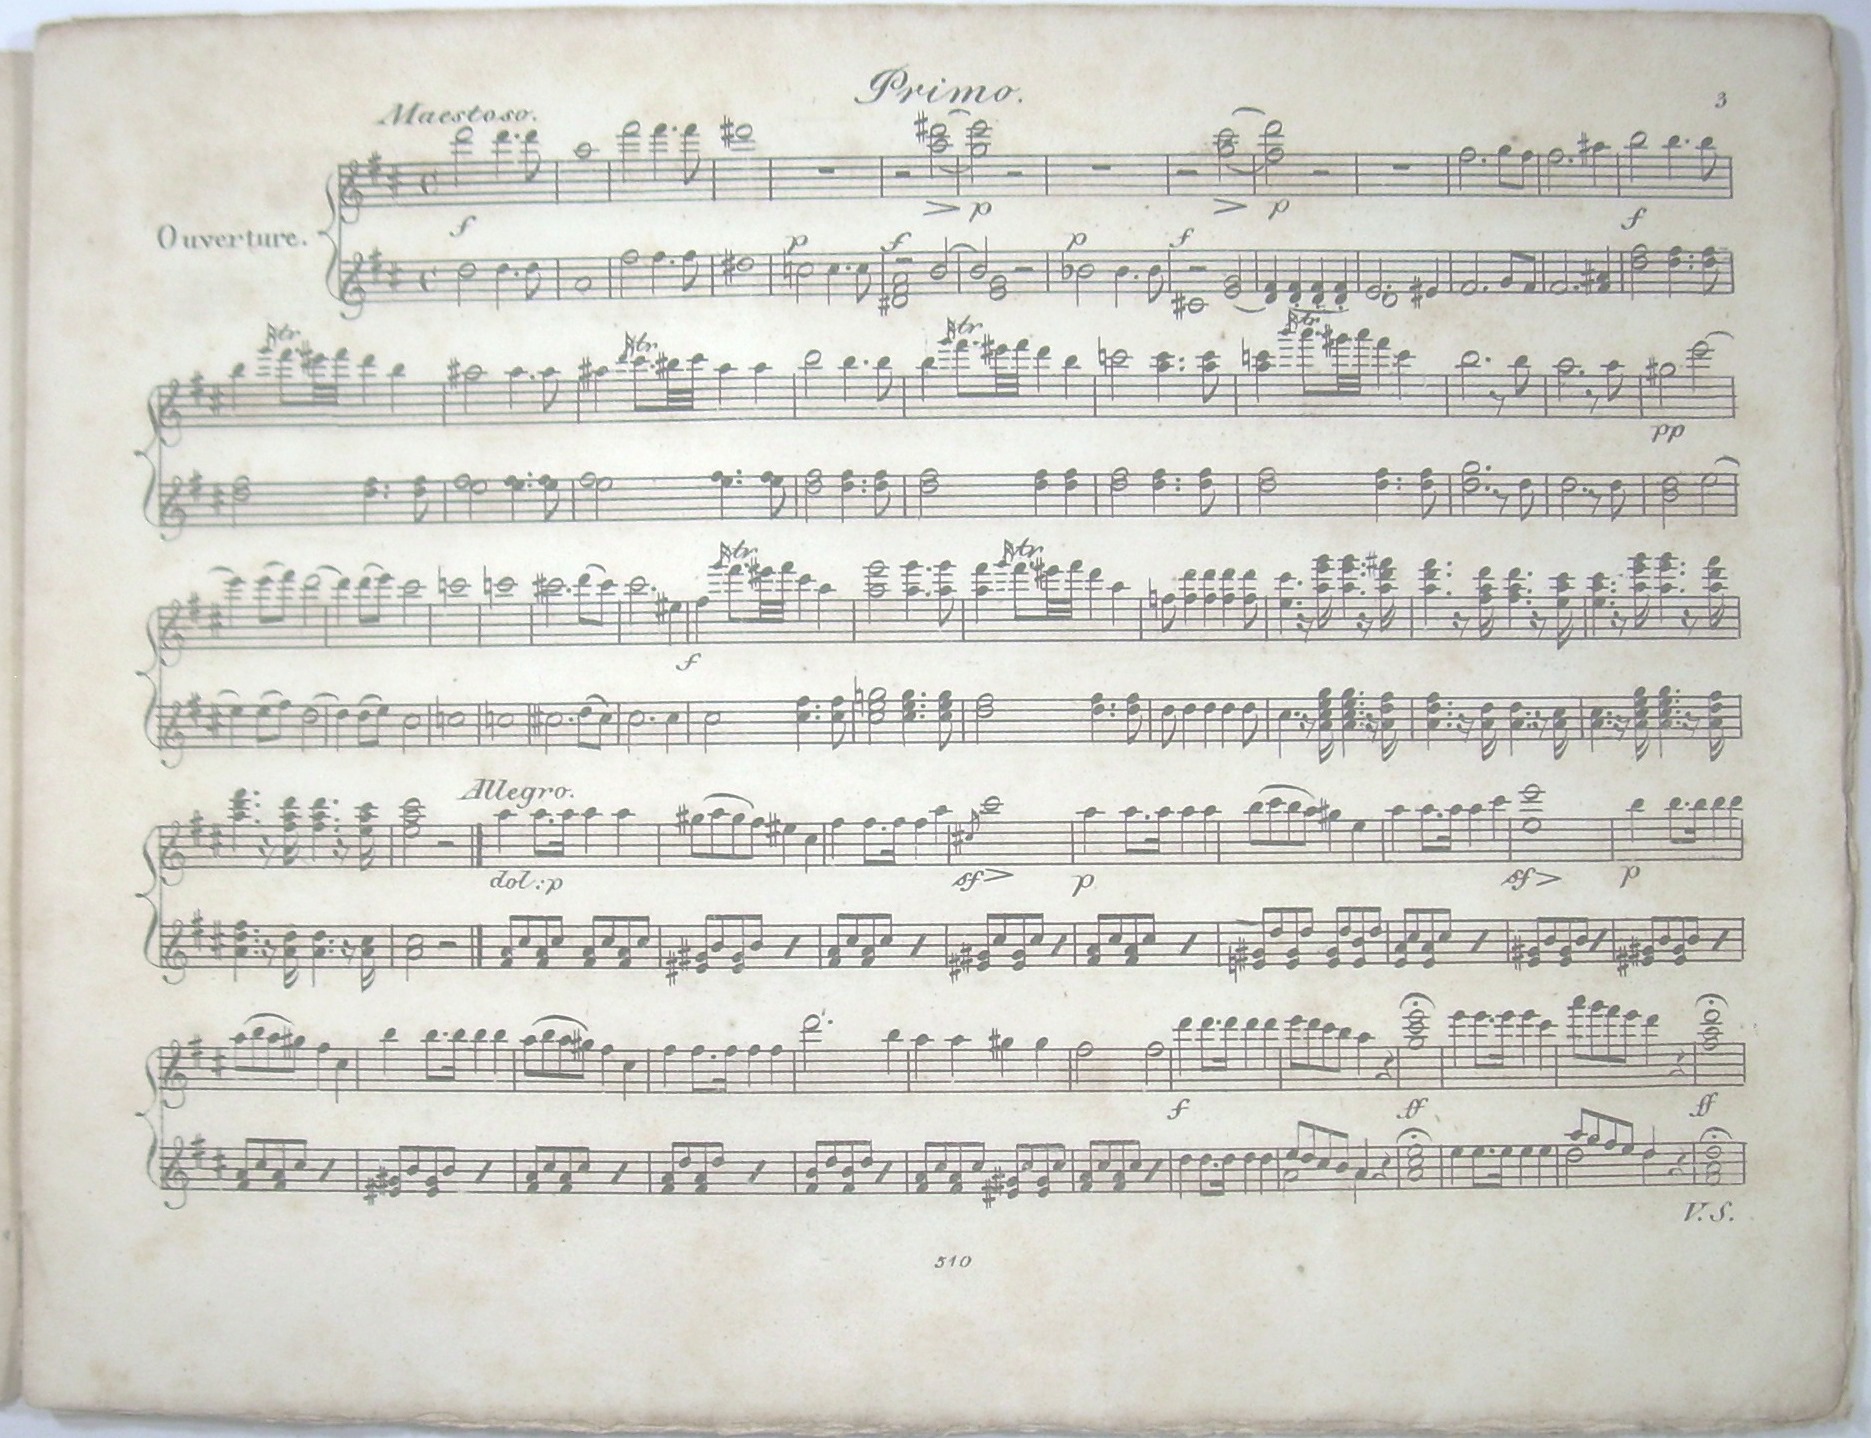 Primo.
3
Maestoso.
Ouverture.
f
p f p f f
> p > p
tr tr tr tr
pp
tr tr
f
Allegro.
dol: p sf> p sf> p
f ff ff
V.S.
510